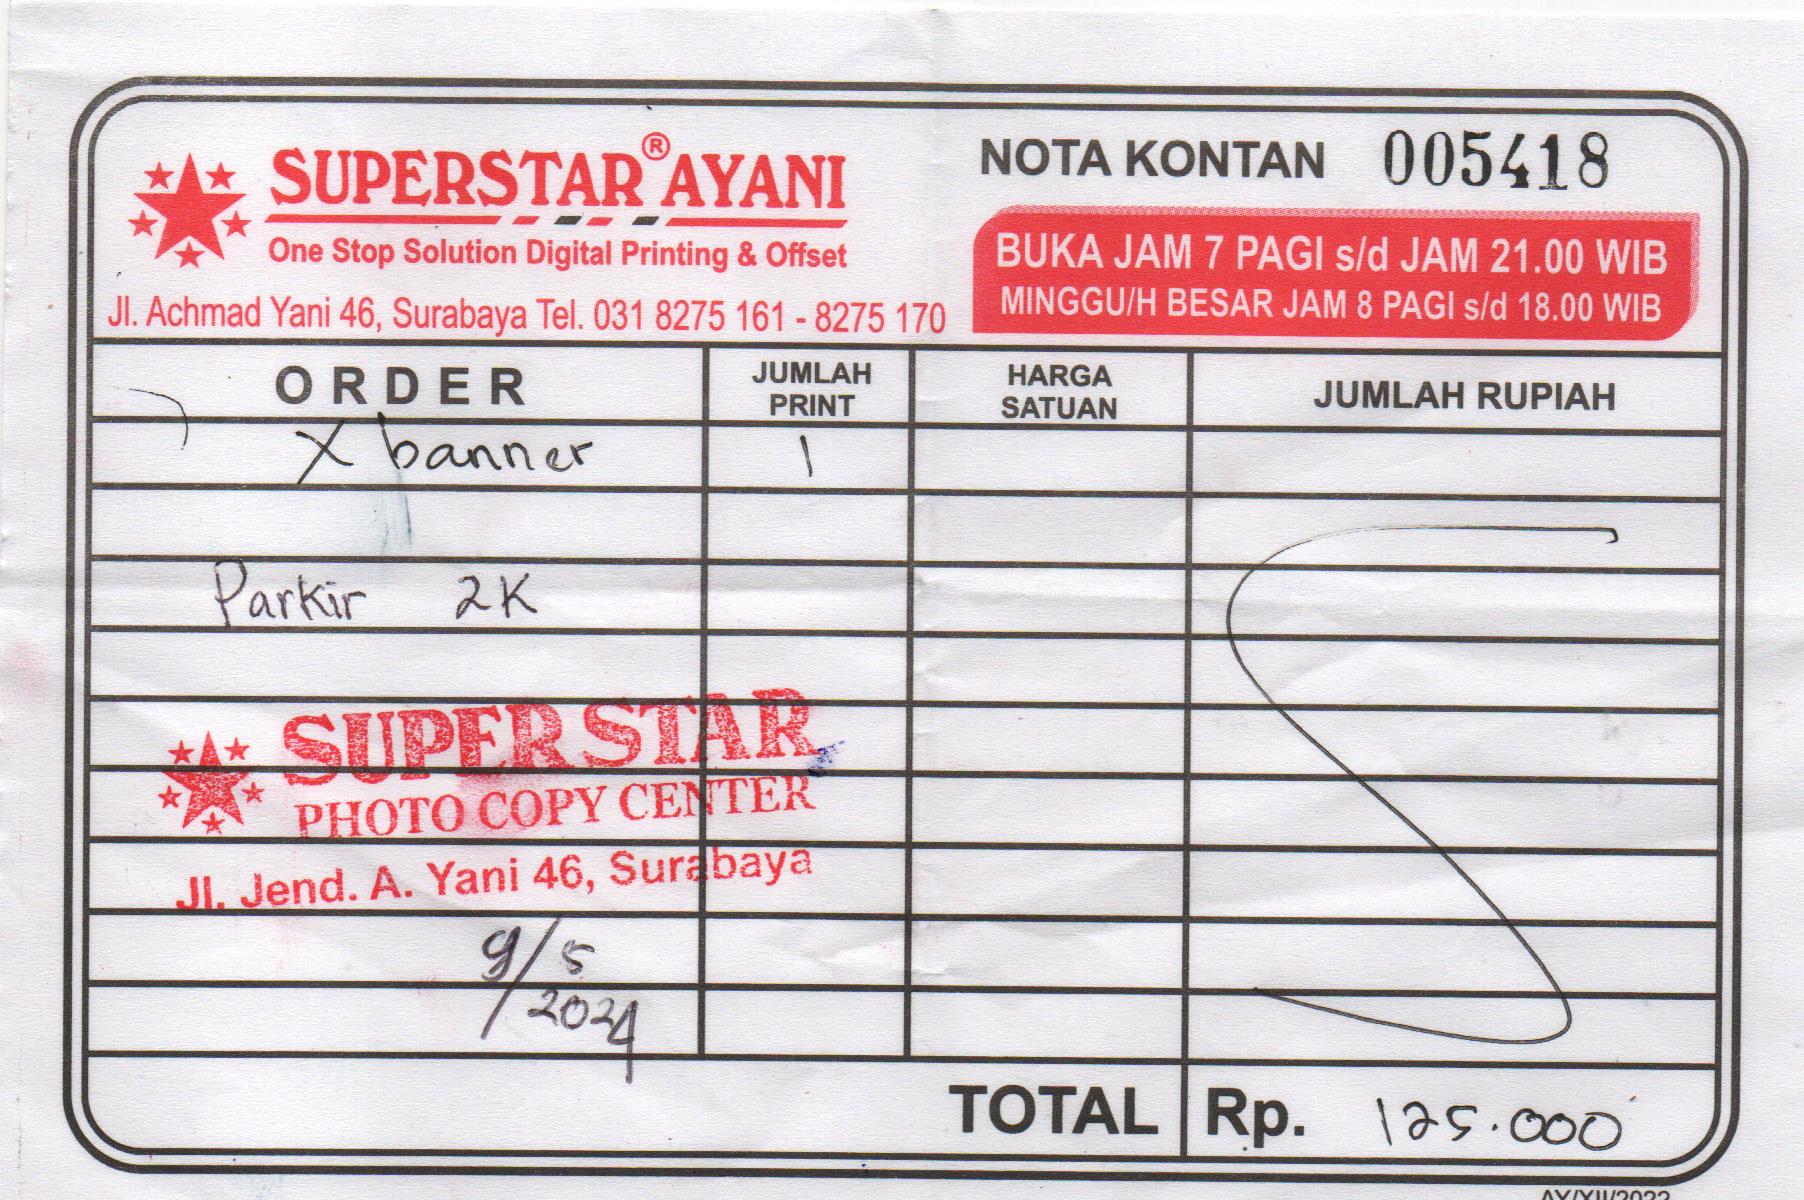 SUPERSTAR® AYANI
One Stop Solution Digital Printing & Offset
Jl. Achmad Yani 46, Surabaya Tel. 031 8275 161 - 8275 170
NOTA KONTAN 005418
BUKA JAM 7 PAGI s/d JAM 21.00 WIB
MINGGU/H BESAR JAM 8 PAGI s/d 18.00 WIB
ORDER JUMLAH PRINT HARGA SATUAN JUMLAH RUPIAH
X banner 1
Parkir 2K
SUPER STAR
PHOTO COPY CENTER
Jl. Jend. A. Yani 46, Surabaya
9/5
2024
TOTAL Rp. 125.000
AY/XII/2022